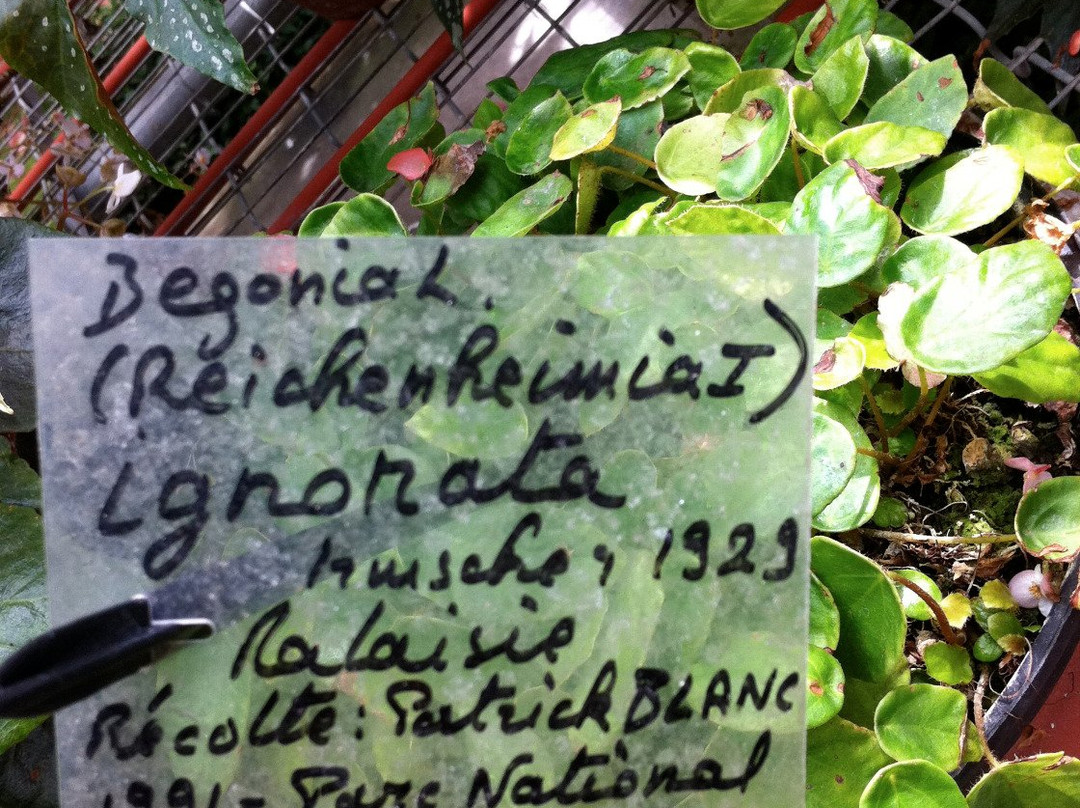 Begonia L.
(Reichenheimia I)
ignorata
Irmscher, 1929
Malaisie
Récolte: Patrick BLANC
1991 - Parc National